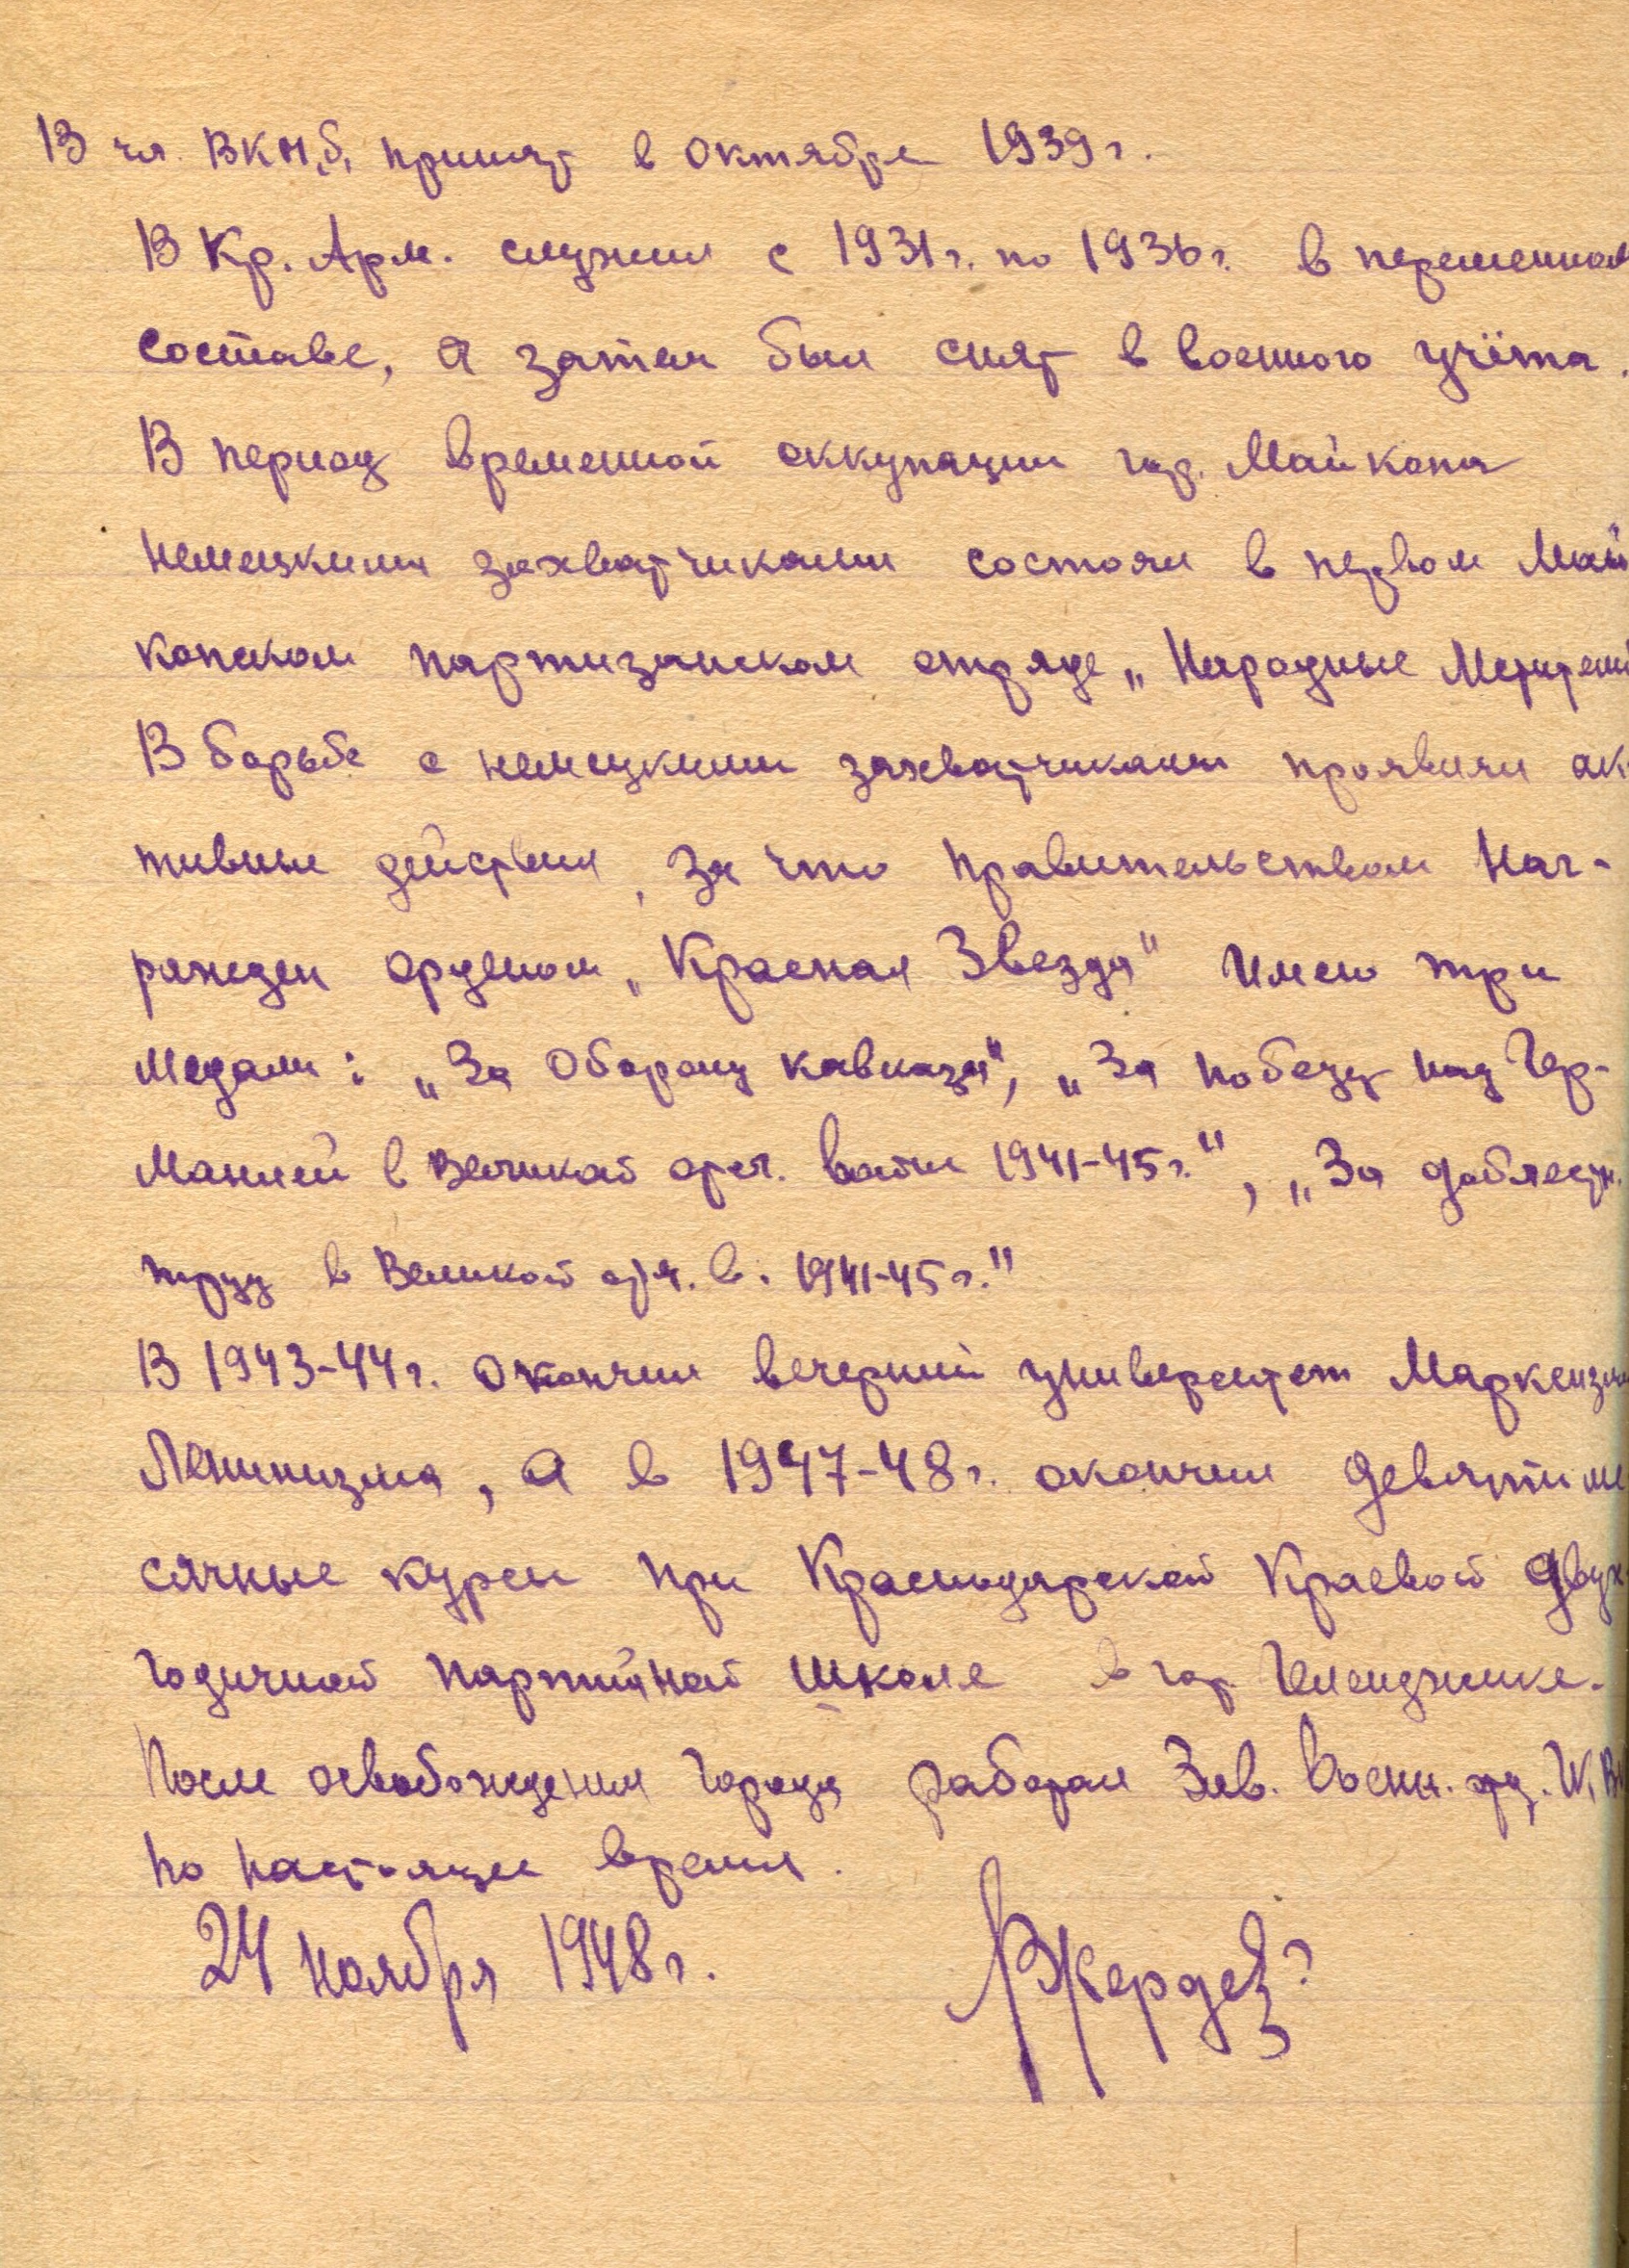 В чл. ВКП,б, принят в октябре 1939 г.
В Кр. Арм. служил с 1931 г. по 1936 г. в переменном
составе, а затем был снят в военного учёта.
В период временной оккупации гор. Майкопа
немецкими захватчиками состоял в первом Май
копском партизанском отряде „Народные Мстители
В борьбе с немецкими захватчиками проявили ак-
тивные действия, за что правительством наг-
ражден орденом „Красная Звезда" Имею три
медали: „За Оборону Кавказа", „За победу над Гер-
манией в Великой отеч. войне 1941-45 г.", „За доблестн.
труд в Великой отч. в. 1941-45 г."
В 1943-44 г. окончил вечерний университет Марксизма
Ленинизма, а в 1947-48 г. окончил девятиме
сячные курсы при Краснодарской Краевой двух
годичной партийной школе в гор. Геленджике.
После освобождения города работал Зав. Военн. отд.
по настояще время.
24 ноября 1948 г.